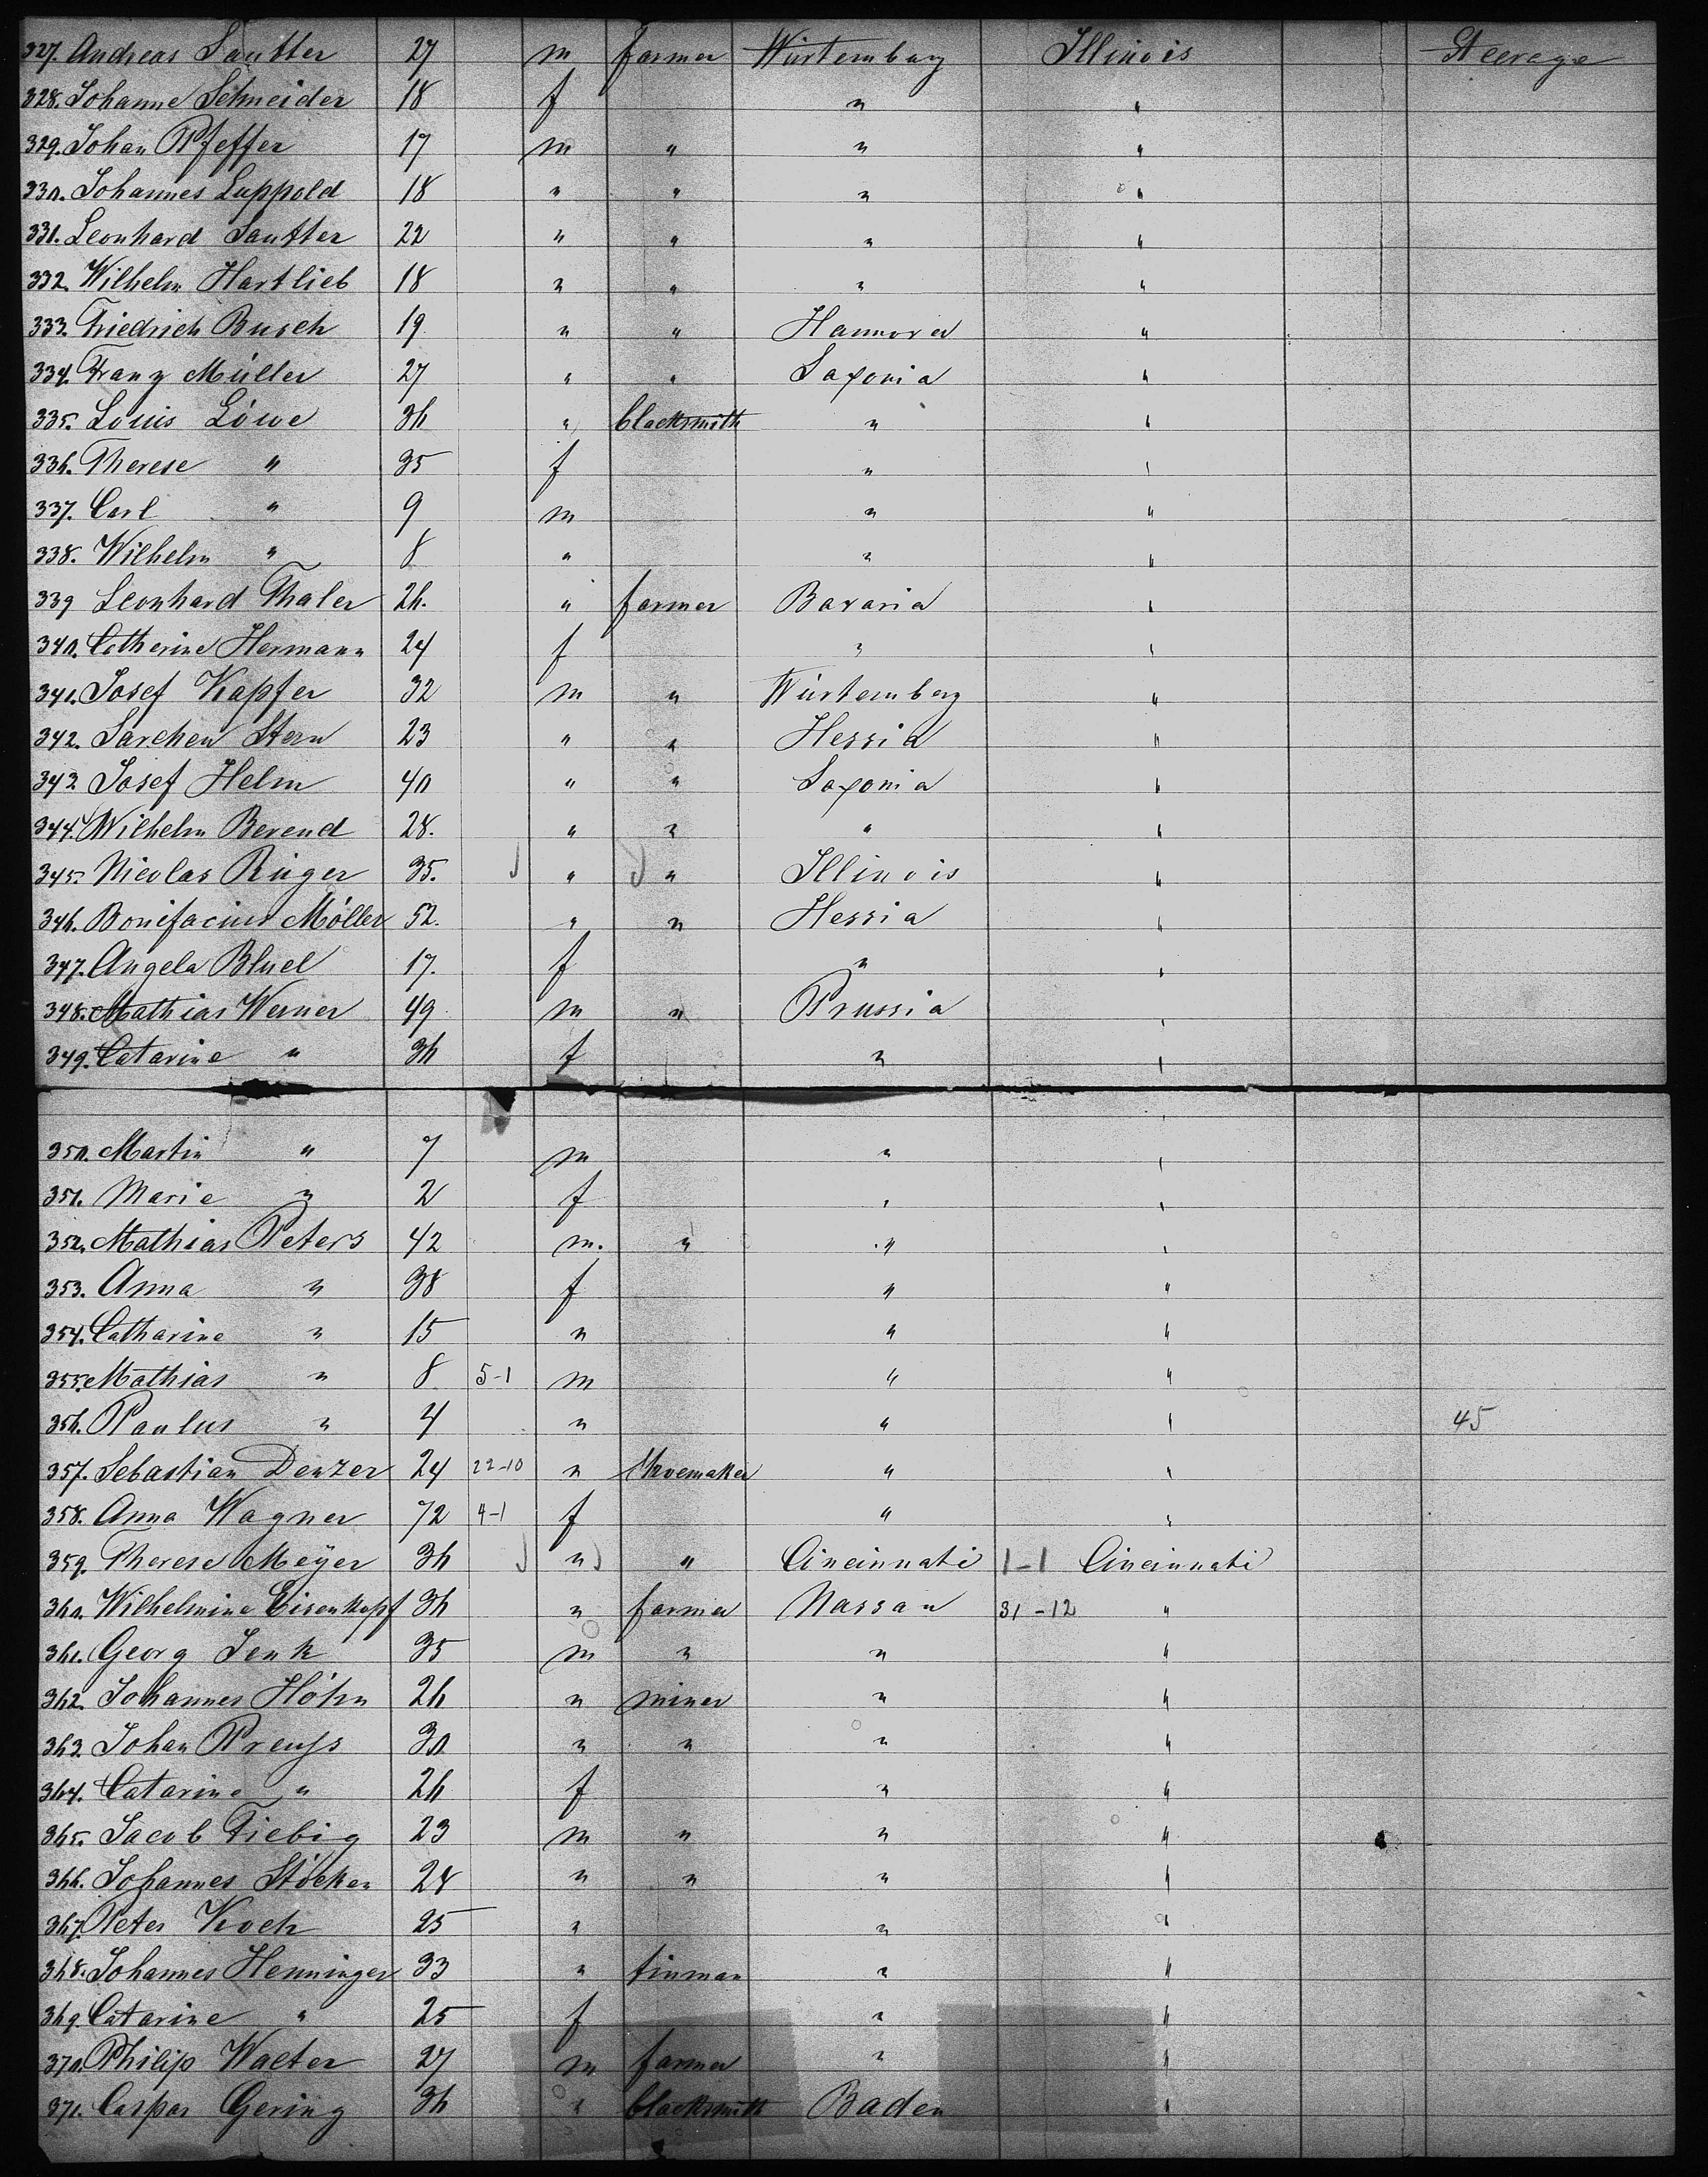 327. Andreas Sautter 27 m farmer Würtemberg Illinois Steerage
328. Johanne Schneider 18 f " "
329. Johan Pfeffer 17 m " " "
330. Johannes Luppold 18 " " " "
331. Leonhard Sautter 22 " " " "
332. Wilhelm Hartlieb 18 " " " "
333. Friedrich Busch 19 " " Hannover "
334. Franz Müller 27 " " Saxonia "
335. Louis Löwe 36 " blacksmith " "
336. Therese " 35 f " "
337. Carl " 9 m " "
338. Wilhelm " 8 " " "
339 Leonhard Thaler 26. " farmer Bavaria "
340. Catherine Hermann 24 f " "
341. Josef Kapfer 32 m " Würtemberg "
342. Sarchen Stern 23 " " Hessia "
343 Josef Helm 40 " " Saxonia "
344. Wilhelm Berend 28. " " " "
345. Nicolas Rüger 35. " " Illinois "
346. Bonifacius Möller 52. " " Hessia "
347. Angela Bluel 17. f " "
348. Mathias Werner 49 m " Prussia "
349. Catarine " 36 f " "
350. Martin " 7 m " "
351. Marie " 2 f " "
352. Mathias Peters 42 m. " " "
353. Anna " 38 f " "
354. Catharine " 15 " " "
355. Mathias " 8 5-1 m " "
356. Paulus " 4 " " " 45
357. Sebastian Denzer 24 22-10 " shoemaker " "
358. Anna Wagner 72 4-1 f " "
359. Therese Meÿer 36 " " Cincinnati 1-1 Cincinnati
360. Wilhelmine Eisenkopf 36 " farmer Nassau 31-12 "
361. Georg Jenk 35 m " " "
362. Johannes Höhn 26 " miner " "
363. Johan Preuss 30 " " " "
364. Catarine " 26 f " "
365. Jacob Fiebig 23 m " " "
366. Johannes Stöcker 28 " " " "
367. Peter Koch 25 " " "
368. Johannes Henninger 33 " tinman " "
369. Catarine " 25 f " "
370. Philip Walter 27 m farmer " "
371. Caspar Gering 36 " blacksmith Baden "